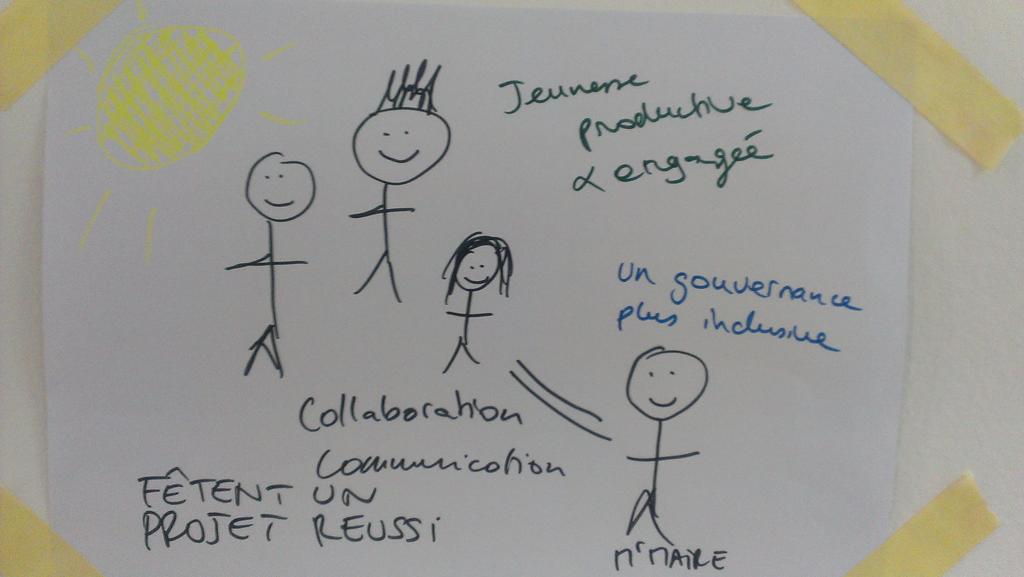 Jeunesse
productive
& engagée
un gouvernance
plus inclusive
Collaboration
Communication
FÊTENT UN
PROJET REUSSI
Mr MAIRE